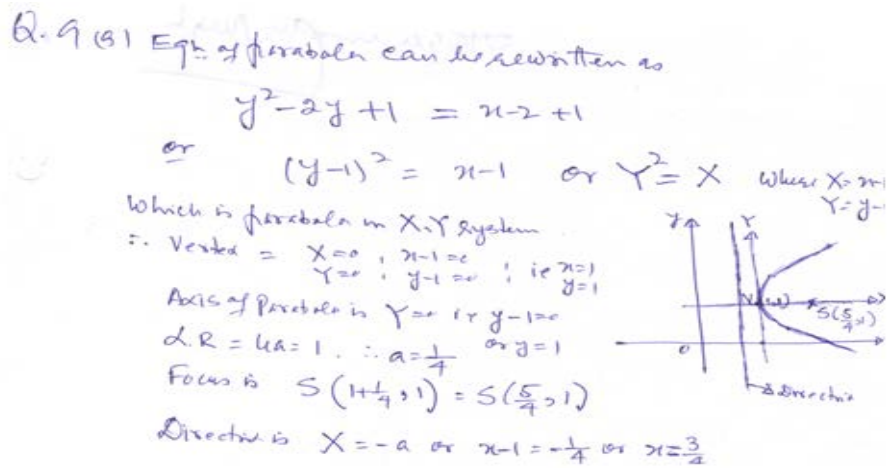 Q. 9 (B) Eqn. of parabola can be rewritten as
y²-2y+1 = x-2+1
or
(y-1)² = x-1 or Y² = X where X = x-1
Y = y-
Which is parabola in X,Y system
∴ Vertex = X=0, x-1=0
Y=0, y-1=0 ; ie x=1
y=1
Axis of Parabola is Y=0 ie y-1=0
or y=1
L.R = 4a = 1. ∴ a = 1/4
Focus is S(1+1/4, 1) = S(5/4, 1)
Directrix is X = -a or x-1 = -1/4 or x = 3/4
y Y
S(5/4, 1)
o
Directrix